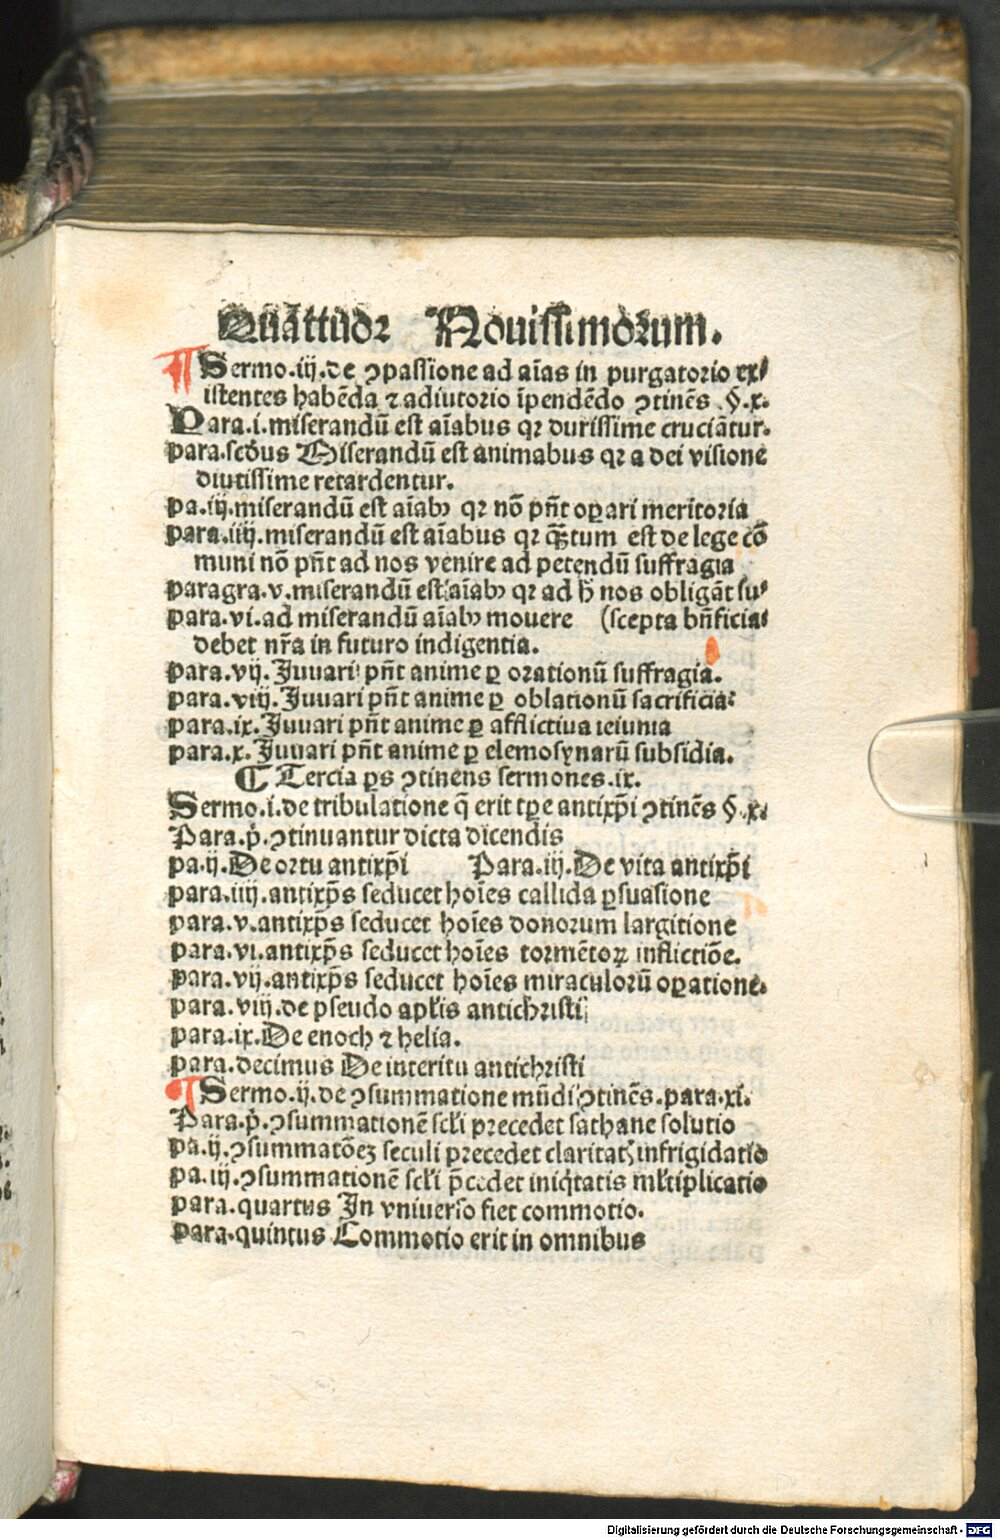 Quattuor Nouissimorum.
¶ Sermo.iij.de ↄpassione ad aīas in purgatorio exi
istentes habēda ⁊ adiutorio īpendēdo ↄtinēs .§.x.
Para.i.miserandū est aīabus qꝛ durissime cruciātur.
para.scd̄us Miserandū est animabus qꝛ a dei visione
diutissime retardentur.
pa.iij.miserandū est aīabꝰ qꝛ nō pn̄t oꝑari meritoria
para.iiij.miserandū est aīabus qꝛ qꝫtum est de lege cō
muni nō pn̄t ad nos venire ad petendū suffragia
paragra.v.miserandū est aīabꝰ qꝛ ad h̄ nos obligāt su
para.vi.ad miserandū aīabꝰ mouere (scepta bn̄ficia
debet nr̄a in futuro indigentia.
para.vij.Iuuari pn̄t anime ꝑ orationū suffragia.
para.viij.Iuuari pn̄t anime ꝑ oblationū sacrificia
para.ix.Iuuari pn̄t anime ꝑ afflictiua ieiunia
para.x.Iuuari pn̄t anime ꝑ elemosynarū subsidia.
¶ Tercia ꝑs ↄtinens sermones.ix.
Sermo.i.de tribulatione q̄ erit tꝑe antixp̄i ↄtinēs §.x.
Para.p̄.ↄtinuantur dicta dicendis
pa.ij.De ortu antixp̄i Para.iij.De vita antixp̄i
para.iiij.antixp̄s seducet hoīes callida ꝑsuasione
para.v.antixp̄s seducet hoīes donorum largitione
para.vi.antixp̄s seducet hoīes tormētoꝝ inflictiōe.
para.vij.antixp̄s seducet hoīes miraculorū oꝑatione.
para.viij.de pseudo apl̄is antichristi
para.ix.De enoch ⁊ helia.
para.decimus De interitu antichristi
¶ Sermo.ij.de ↄsummatione mūdi ↄtinēs.para.xi.
Para.p̄.ↄsummationē scl̄i precedet sathane solutio
pa.ij.ↄsummatōeꝫ seculi precedet claritat infrigidatio
pa.iij.ↄsummationē scl̄i p̄cedet iniq̄tatis ml̄tiplicatio
para.quartus In vniuerso fiet commotio.
para.quintus Commotio erit in omnibus
Digitalisierung gefördert durch die Deutsche Forschungsgemeinschaft - DFG